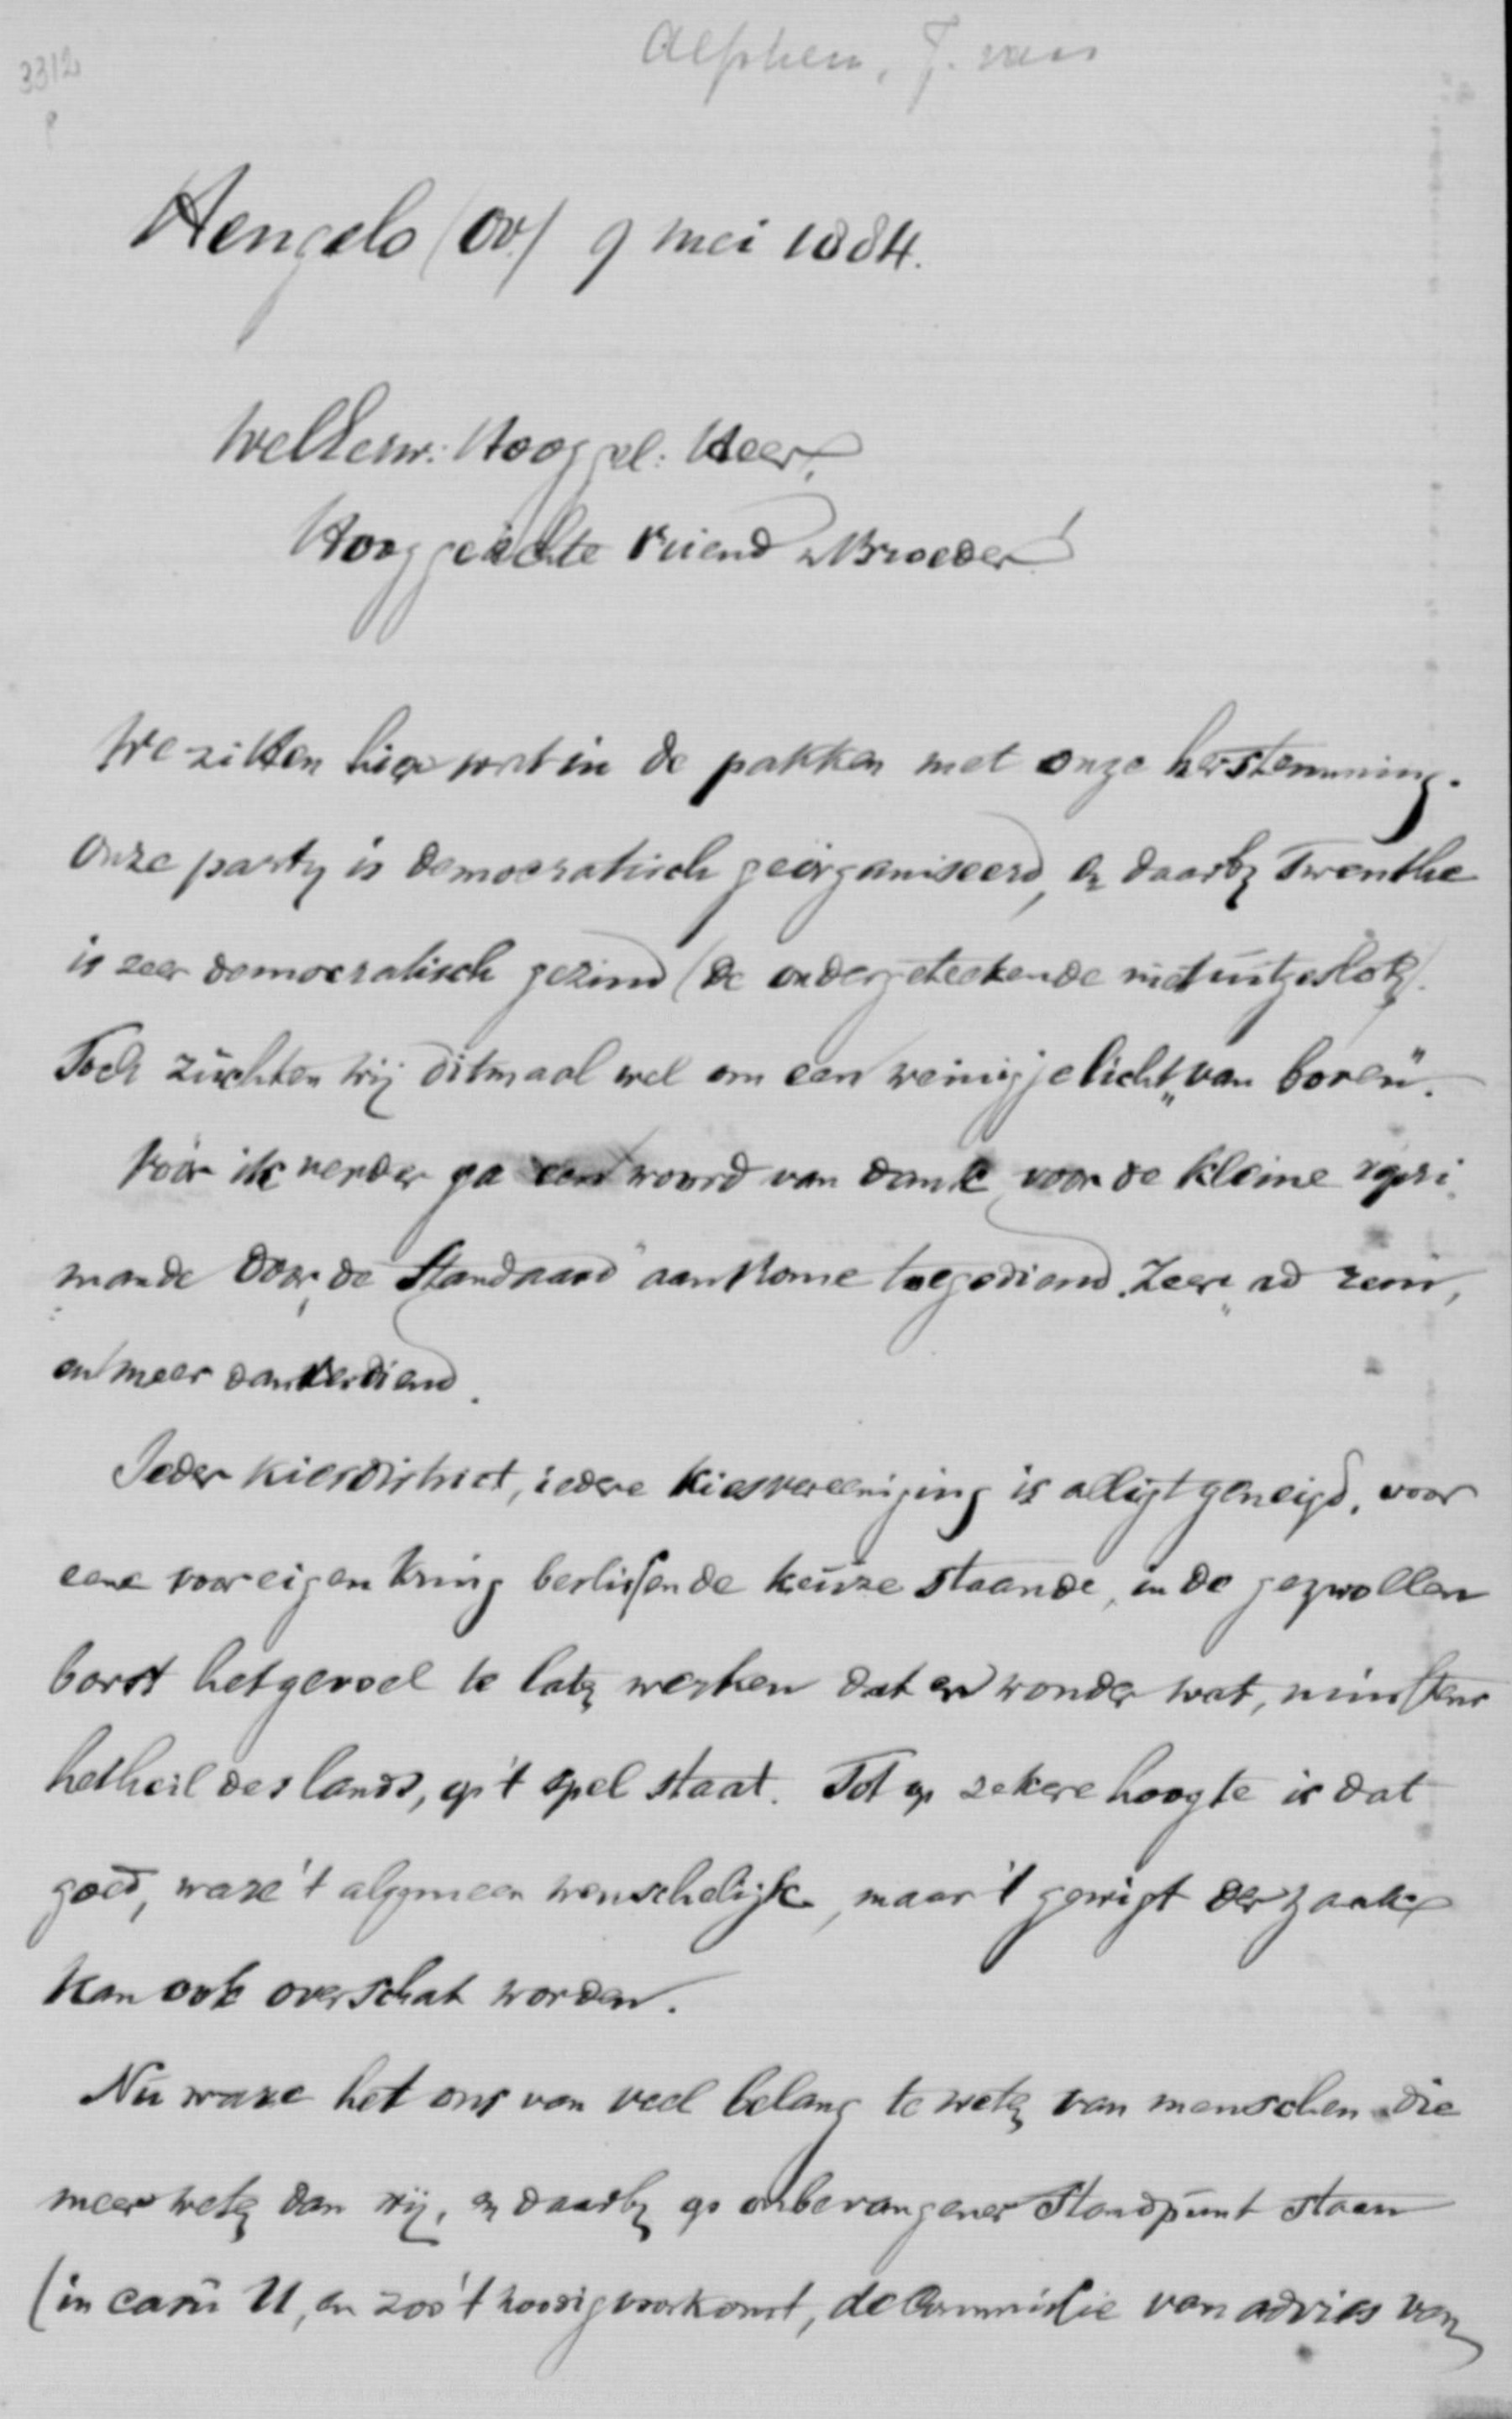 Alphen, J. van
3312
Hengelo (Ov.) 9 mei 1884.
WelEerw: Hooggel: Heer,
Hooggeachte Vriend en Broeder!
We zitten hier wat in de pakken met onze herstemming.
Onze party is democratisch georganiseerd, en daarby Twenthe
is zeer democratisch gezind (de ondergeteekende niet uitgesloten).
Toch zuchten wij ditmaal wel om een weinigje licht „van boven".
Vóór ik verder ga een woord van dank voor de kleine repri
mande door „de Standaard" aan Rome toegediend. Zeer „ad rem,
en meer dan verdiend.
Ieder kiesdistrict, iedere kiesvereeniging is alligt geneigd, voor
eene voor eigen kring beslissende keuze staande, in de gezwollen
borst het gevoel te laten werken dat er wonder wat, minstens
het heil des lands, op 't spel staat. Tot op zekere hoogte is dat
goed, ware 't algemeen wenschelijk, maar 't gewigt der zaak
kan ook overschat worden.
Nu ware het ons van veel belang te weten van menschen die
meer weten dan wij, en daarby op onbevangener standpunt staan
(in casu U, en zoo 't noodig voorkomt, de Commissie van advies van